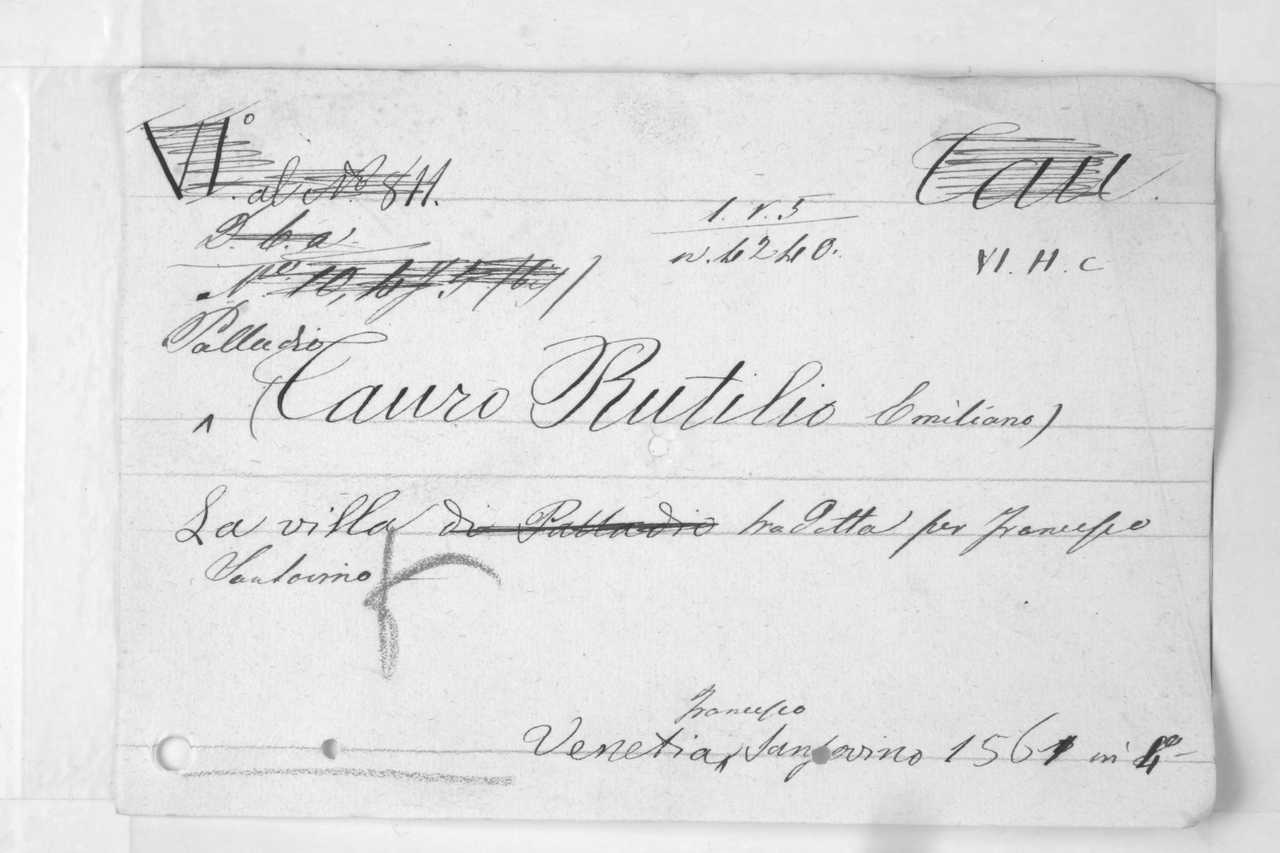 V.° al N° 811. Tau.
D. 6. a.
1. V. 5
n. 4240. VI. H. c
N.° 10,
Palladio
(Tauro Rutilio Emiliano)
La villa di Palladio tradotta per Francesco
Sansovino
Francesco
Venetia, Sansovino 1561 in 4°